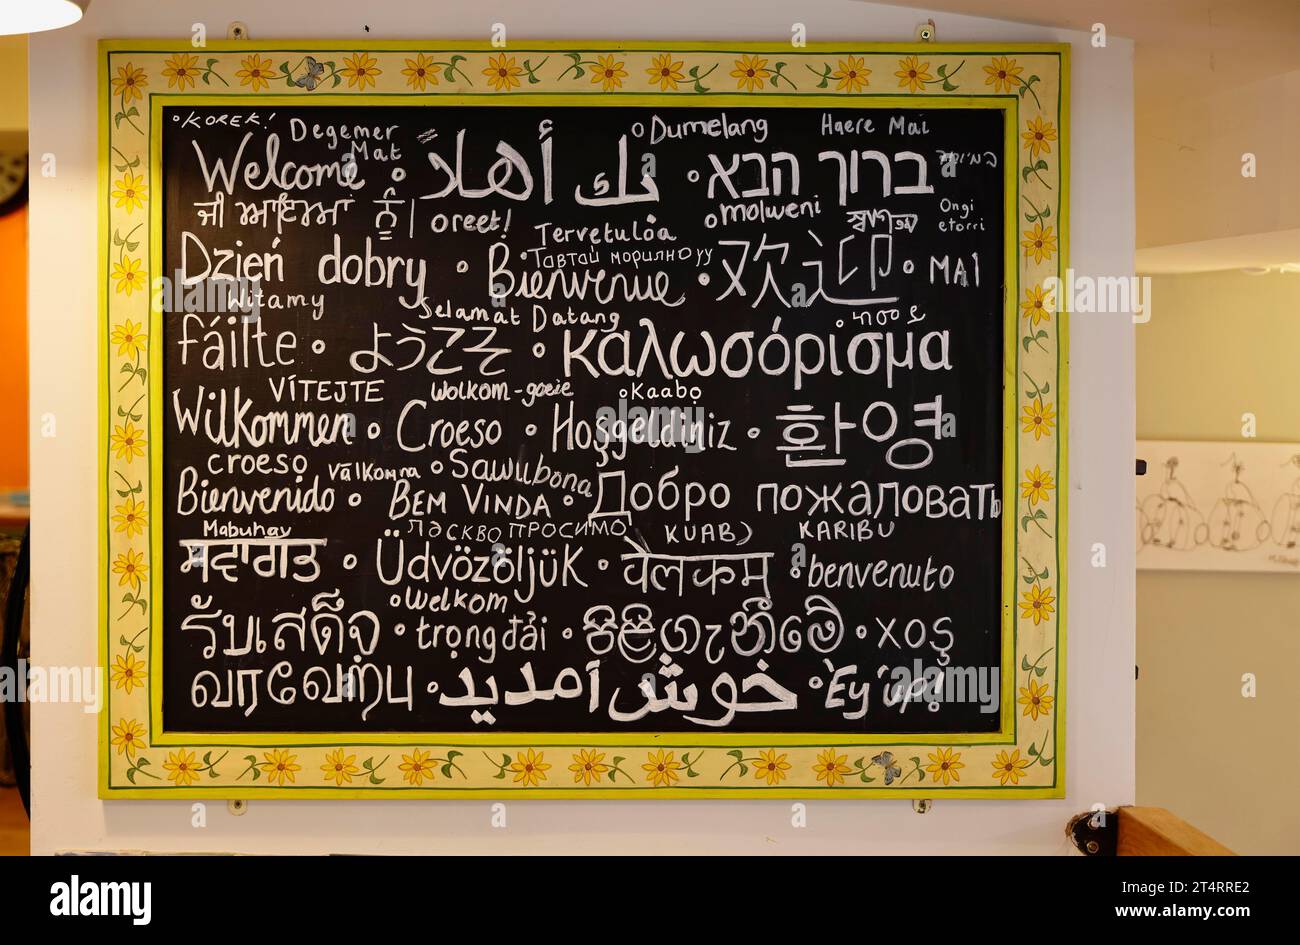 KOREK! Degemer Mat Dumelang Haere Mai
Welcome • أهلاً بك • ברוך הבא
ਜੀ ਆਇਆਂ ਨੂੰ oreet! Tervetuloa molweni Ongi etorri
Dzień dobry • Bienvenue • 欢迎 • MAI
Тавтай морилно уу
Witamy Selamat Datang
fáilte • ようこそ • καλωσόρισμα
VÍTEJTE Wolkom-goeie Kaabọ
Wilkommen • Croeso • Hoşgeldiniz • 환영
croeso Välkomna Sawubona
Bienvenido • BEM VINDA • Добро пожаловать
Mabuhay ЛАСКВО ПРОСИМО KUABO KARIBU
ਸਵਾਗਤ • Üdvözöljük • वेलकम • benvenuto
Welkom
รับเสด็จ • trọng đải • පිළිගැනීමේ • xoş
வரவேற்பு • خوش آمدید • 'Ey 'up!
alamy
Image ID: 2T4RRE2
www.alamy.com